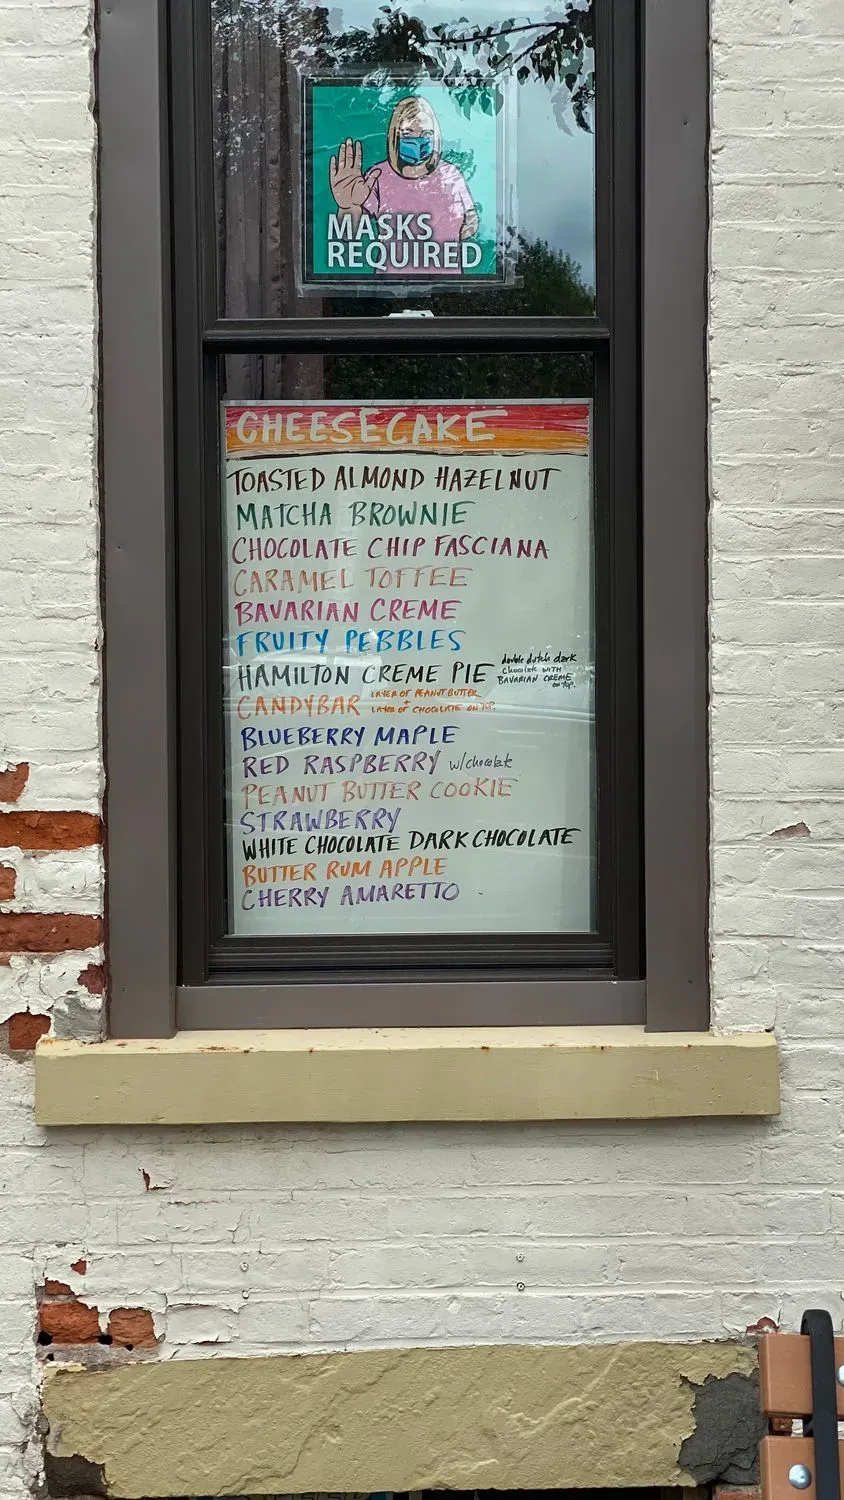 MASKS
REQUIRED
CHEESECAKE
TOASTED ALMOND HAZELNUT
MATCHA BROWNIE
CHOCOLATE CHIP FASCIANA
CARAMEL TOFFEE
BAVARIAN CREME
FRUITY PEBBLES
HAMILTON CREME PIE double dutch dark
chocolate WITH
BAVARIAN CREME
on TOP.
CANDYBAR LAYER OF PEANUT BUTTER
+
LAYER OF CHOCOLATE ON TOP.
BLUEBERRY MAPLE
RED RASPBERRY w/chocolate
PEANUT BUTTER COOKIE
STRAWBERRY
WHITE CHOCOLATE DARK CHOCOLATE
BUTTER RUM APPLE
CHERRY AMARETTO